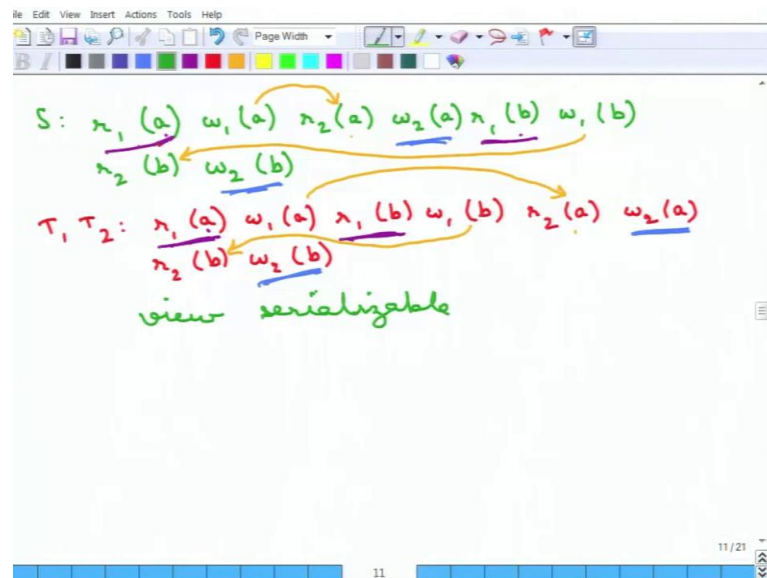 ile Edit View Insert Actions Tools Help
Page Width
B I
S: r₁(a) w₁(a) r₂(a) w₂(a) r₁(b) w₁(b)
r₂(b) w₂(b)
T₁ T₂: r₁(a) w₁(a) r₁(b) w₁(b) r₂(a) w₂(a)
r₂(b) w₂(b)
view serializable
11 / 21
11